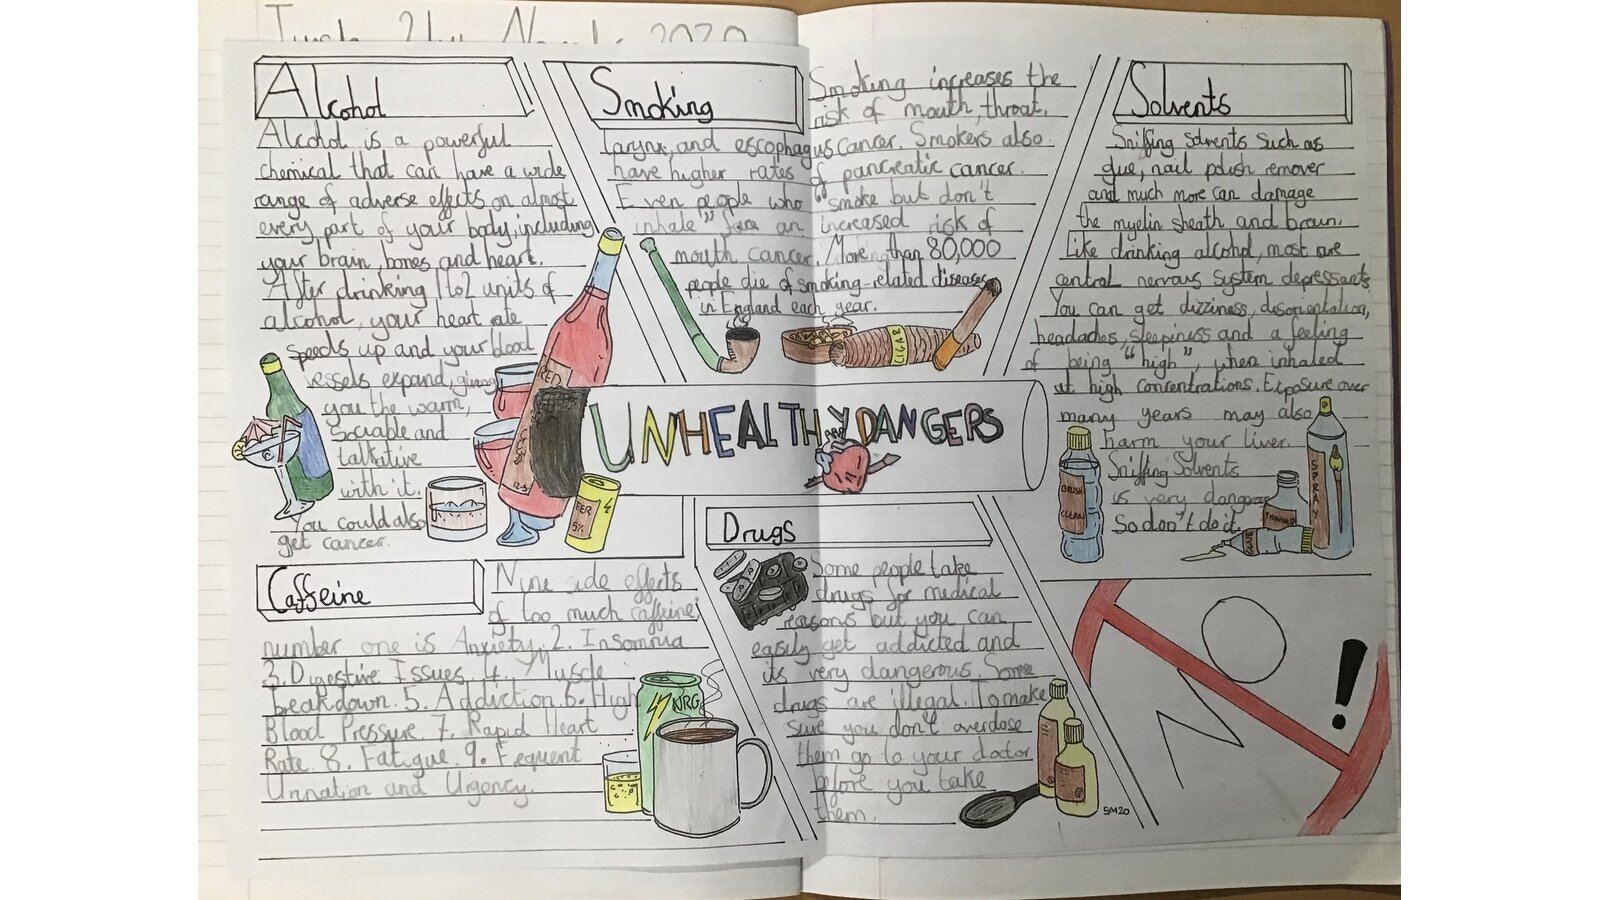 2020
Alcohol
Alcohol is a powerful
chemical that can have a wide
range of adverse effects on almost
every part of your body, including
your brain, bones and heart.
After drinking 1 to 2 units of
alcohol, your heart rate
speeds up and your blood
vessels expand, giving
you the warm,
Sociable and
talkative
with it.
You could also
get cancer.
Smoking
Smoking increases the
risk of mouth, throat,
larynx, and escophagus cancer. Smokers also
have higher rates of pancreatic cancer.
Even people who "smoke but don't
inhale" face an increased risk of
mouth cancer. More than 80,000
people die of smoking-related diseases
in England each year.
CIGAR
Solvents
Sniffing solvents such as
glue, nail polish remover
and much more can damage
the myelin sheath and brain.
Like drinking alcohol, most are
central nervous system depressants
You can get dizziness, disorientation,
headaches, sleepiness and a feeling
of being "high", when inhaled
at high concentrations. Exposure over
many years may also
harm your liver.
Sniffing Solvents
is very dangerous
So don't do it.
BRUSH
CLEAN
GLUE
SPRAY
UNHEALTHY DANGERS
RED
12.5
BEER
5%
Caffeine
Nine side effects
of too much caffeine:
number one is Anxiety. 2. Insomnia
3. Digestive Issues 4. Muscle
breakdown. 5. Addiction. 6. High
Blood Pressure. 7. Rapid Heart
Rate. 8. Fatigue. 9. Frequent
Urination and Urgency.
NRG
Drugs
Some people take
drugs for medical
reasons but you can
easily get addicted and
its very dangerous. Some
drugs are illegal. To make
sure you don't overdose
them go to your doctor
before you take
them.
SM20
NO!